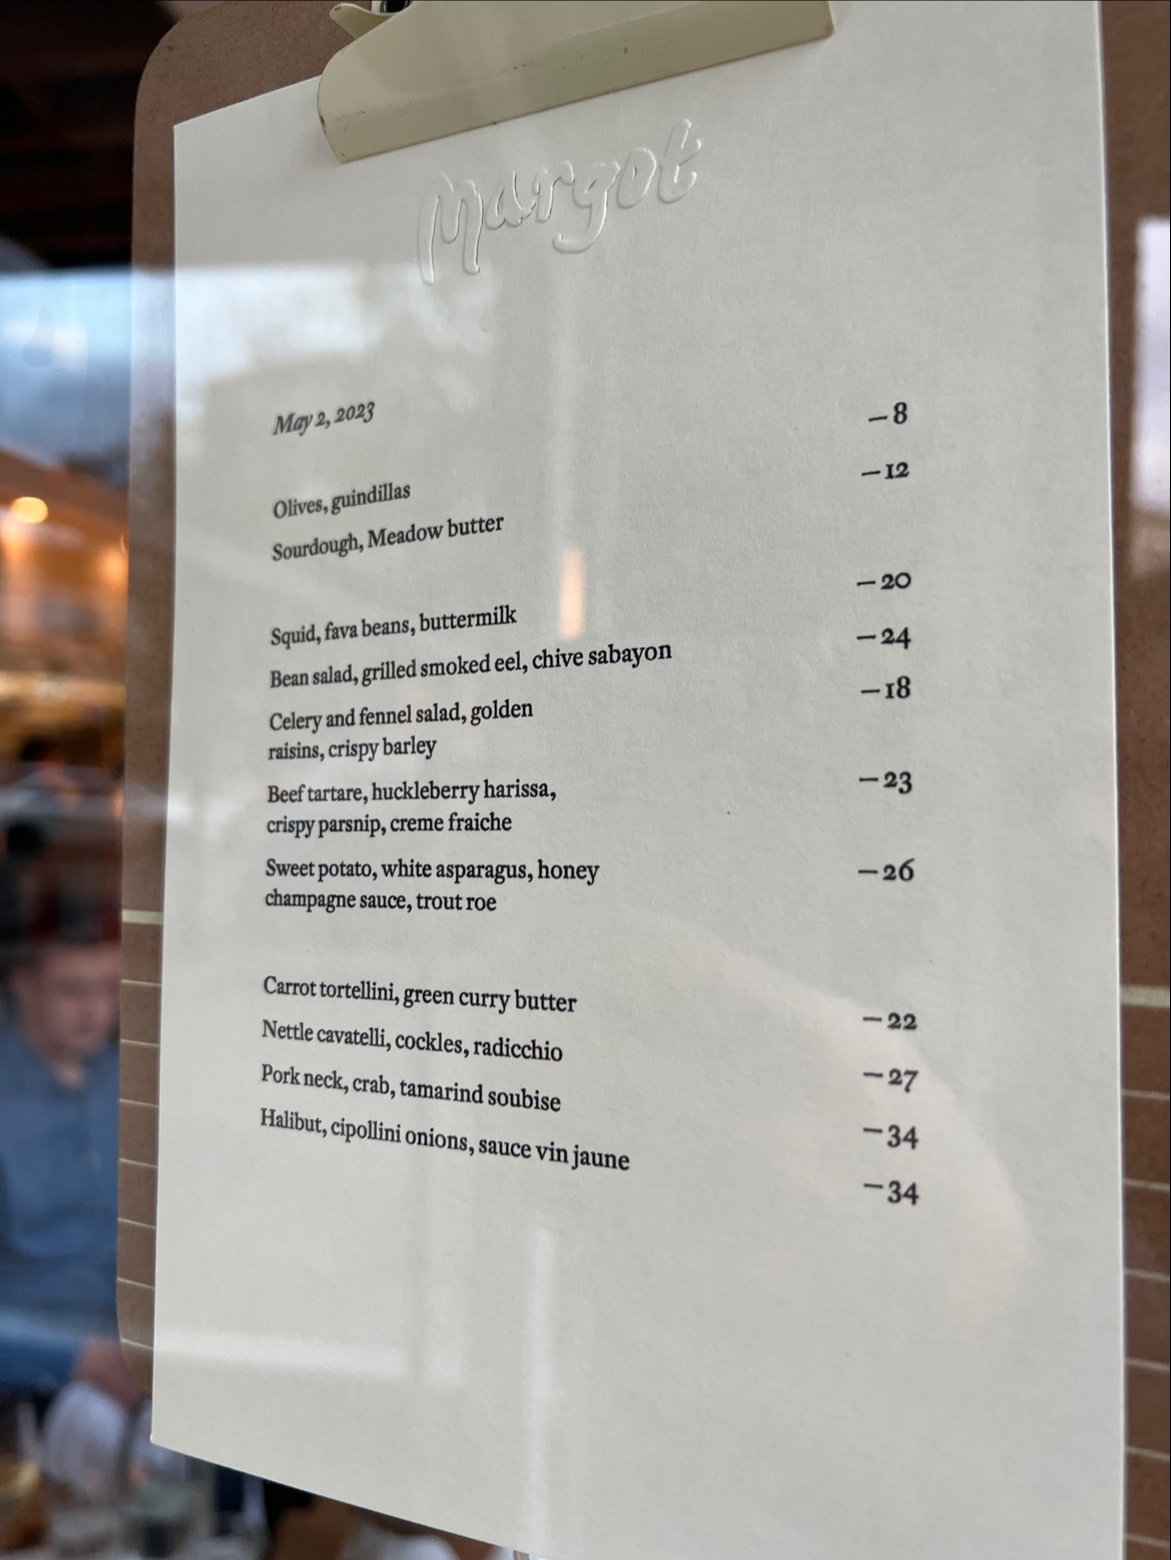 Margot
May 2, 2023
Olives, guindillas —8
Sourdough, Meadow butter —12
Squid, fava beans, buttermilk —20
Bean salad, grilled smoked eel, chive sabayon —24
Celery and fennel salad, golden —18
raisins, crispy barley
Beef tartare, huckleberry harissa, —23
crispy parsnip, creme fraiche
Sweet potato, white asparagus, honey —26
champagne sauce, trout roe
Carrot tortellini, green curry butter —22
Nettle cavatelli, cockles, radicchio —27
Pork neck, crab, tamarind soubise —34
Halibut, cipollini onions, sauce vin jaune —34